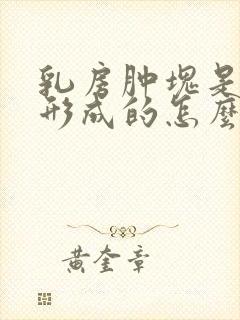 乳房肿块是
形成的怎麽
黄奎章